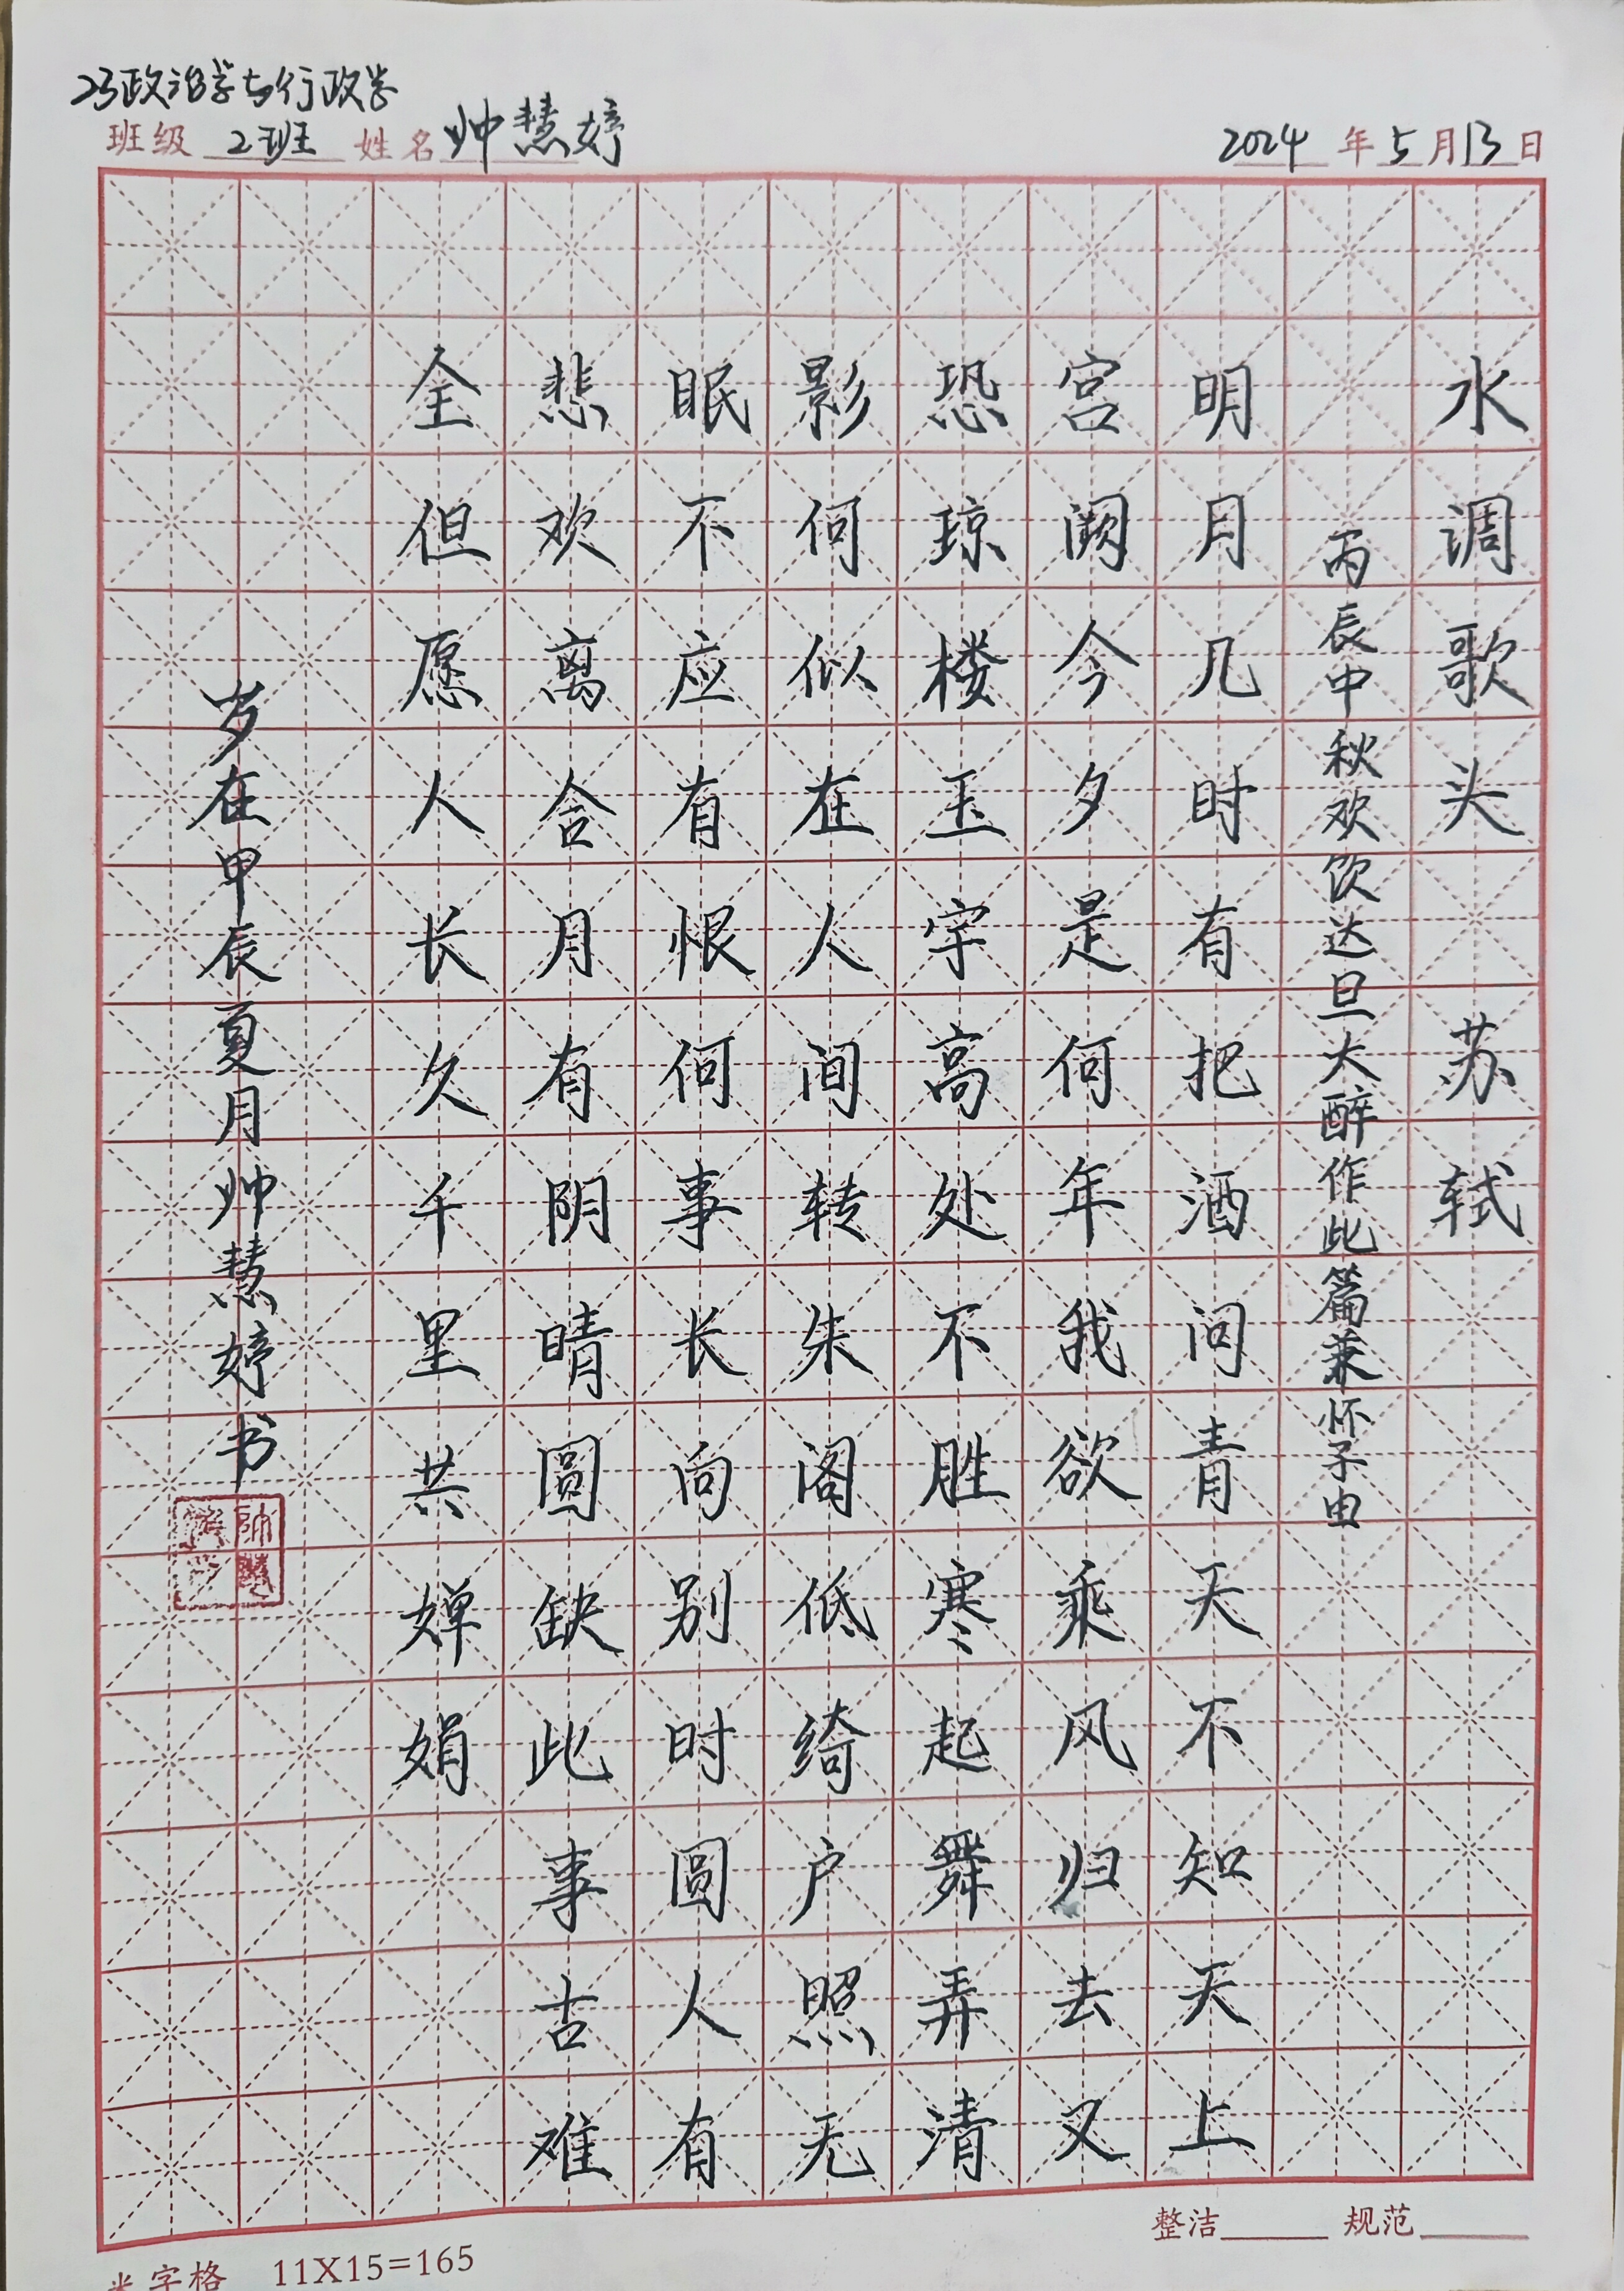 23政治学与行政学
班级 2班 姓名 帅慧婷 2024 年 5 月 13 日
水调歌头 苏轼
丙辰中秋欢饮达旦大醉作此篇兼怀子由
明月几时有把酒问青天不知天上
宫阙今夕是何年我欲乘风归去又
恐琼楼玉宇高处不胜寒起舞弄清
影何似在人间转朱阁低绮户照无
眠不应有恨何事长向别时圆人有
悲欢离合月有阴晴圆缺此事古难
全但愿人长久千里共婵娟
岁在甲辰夏月帅慧婷书
整洁 规范
米字格 11X15=165